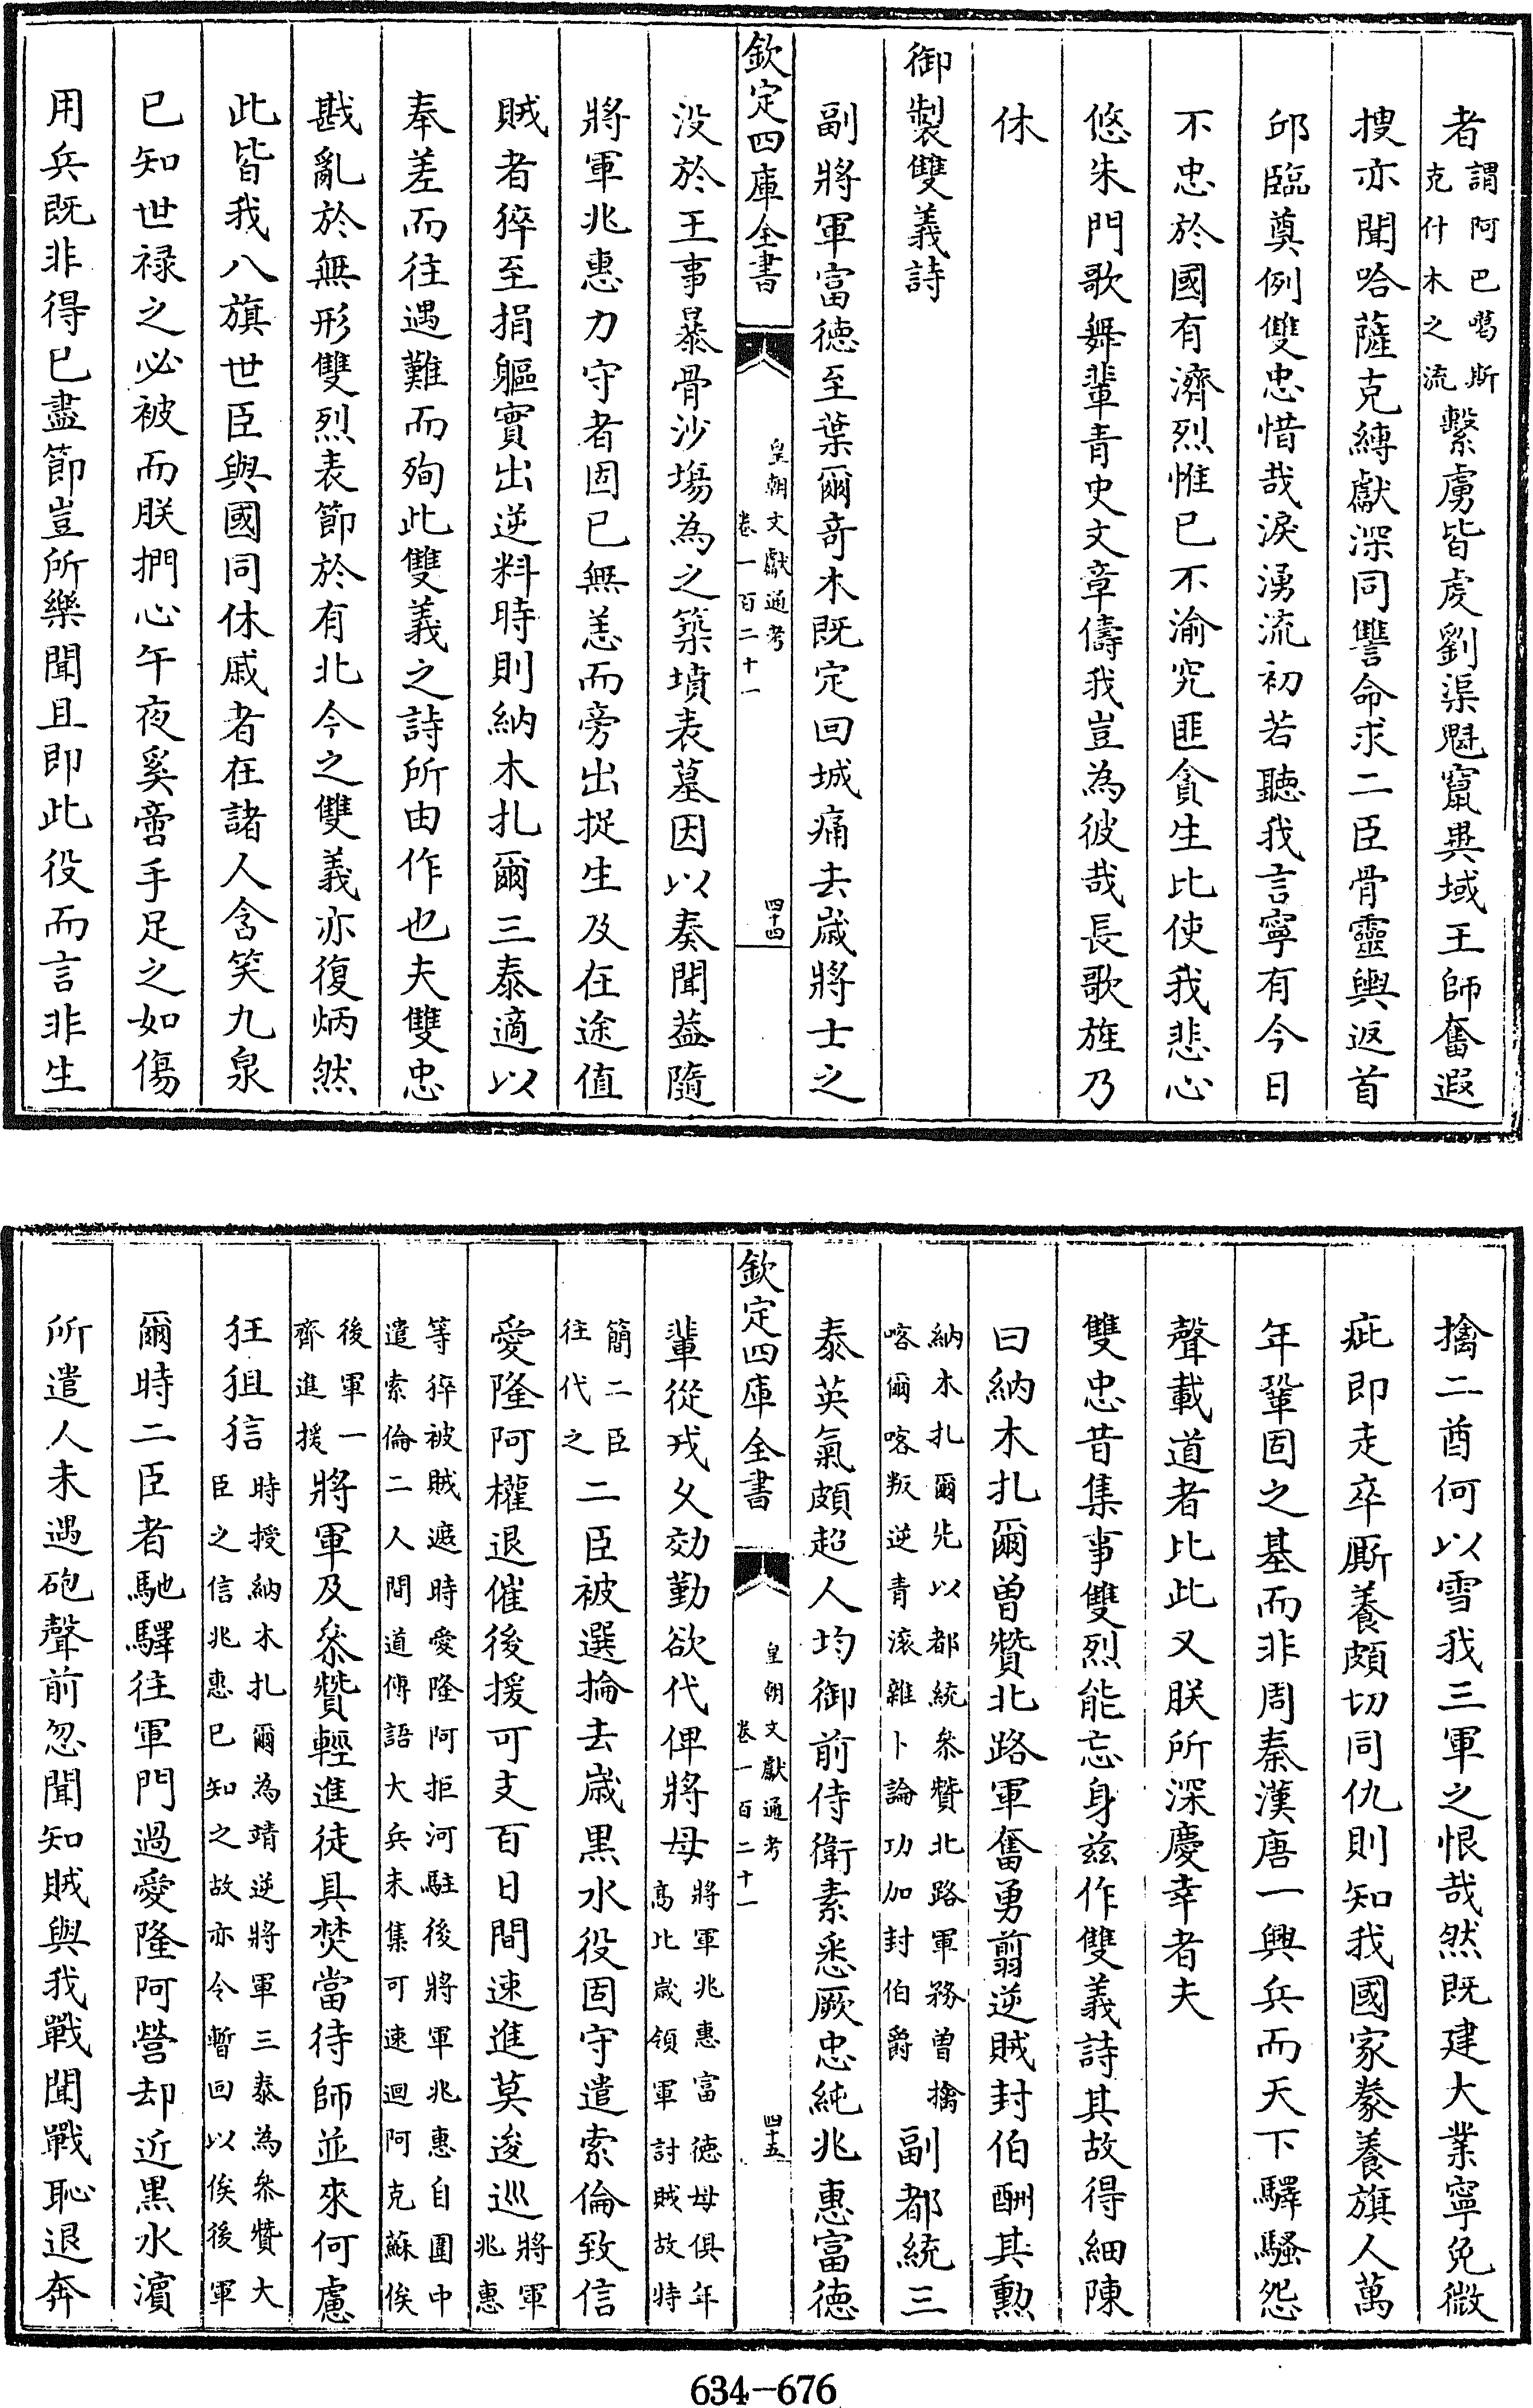 者謂阿巴噶斯克什木之流繫虜皆虔劉渠魁竄異域王師奮遐
搜亦聞哈薩克縛獻深同讐命求二臣骨靈輿返首
邱臨奠例雙忠惜哉淚湧流初若聽我言寧有今日
不忠於國有濟烈惟已不渝究匪貪生比使我悲心
悠朱門歌舞輩青史文章儔我豈為彼哉長歌旌乃
休
御製雙義詩
副將軍富德至葉爾竒木既定回城痛去嵗將士之
欽定四庫全書
皇朝文獻通考
卷一百二十一
四十四
没於王事暴骨沙塲為之築墳表墓因以奏聞葢隨
將軍兆惠力守者固已無恙而旁出捉生及在途值
賊者猝至捐軀實出逆料時則納木扎爾三泰適以
奉差而往遇難而殉此雙義之詩所由作也夫雙忠
戡亂於無形雙烈表節於有北今之雙義亦復炳然
此皆我八旗世臣與國同休戚者在諸人含笑九泉
已知世禄之必被而朕捫心午夜奚啻手足之如傷
用兵既非得已盡節豈所樂聞且即此役而言非生
擒二酋何以雪我三軍之恨哉然既建大業寧免微
疵即走卒厮養頗切同仇則知我國家豢養旗人萬
年鞏固之基而非周秦漢唐一興兵而天下驛騷怨
聲載道者比此又朕所深慶幸者夫
雙忠昔集事雙烈能忘身兹作雙義詩其故得細陳
曰納木扎爾曽贊北路軍奮勇翦逆賊封伯酬其勲
納木扎爾先以都統叅贊北路軍務曽擒喀爾喀叛逆青滚雜卜論功加封伯爵副都統三
泰英氣頗超人均御前侍衛素悉厥忠純兆惠富德
欽定四庫全書
皇朝文獻通考
卷一百二十一
四十五
輩從戎久効勤欲代俾將母將軍兆惠富德母俱年高比嵗領軍討賊故特
簡二臣往代之二臣被選掄去嵗黒水役固守遣索倫致信
愛隆阿權退催後援可支百日間速進莫逡巡將軍兆惠
等猝被賊遮時愛隆阿拒河駐後將軍兆惠自圍中遣索倫二人間道傳語大兵未集可速迴阿克蘇俟
後軍一齊進援將軍及叅贊輕進徒具焚當待師並來何慮
狂狙狺時授納木扎爾為靖逆將軍三泰為叅贊大臣之信兆惠已知之故亦令暫回以俟後軍
爾時二臣者馳驛往軍門過愛隆阿營却近黒水濱
所遣人未遇砲聲前忽聞知賊與我戰聞戰恥退奔
634-676